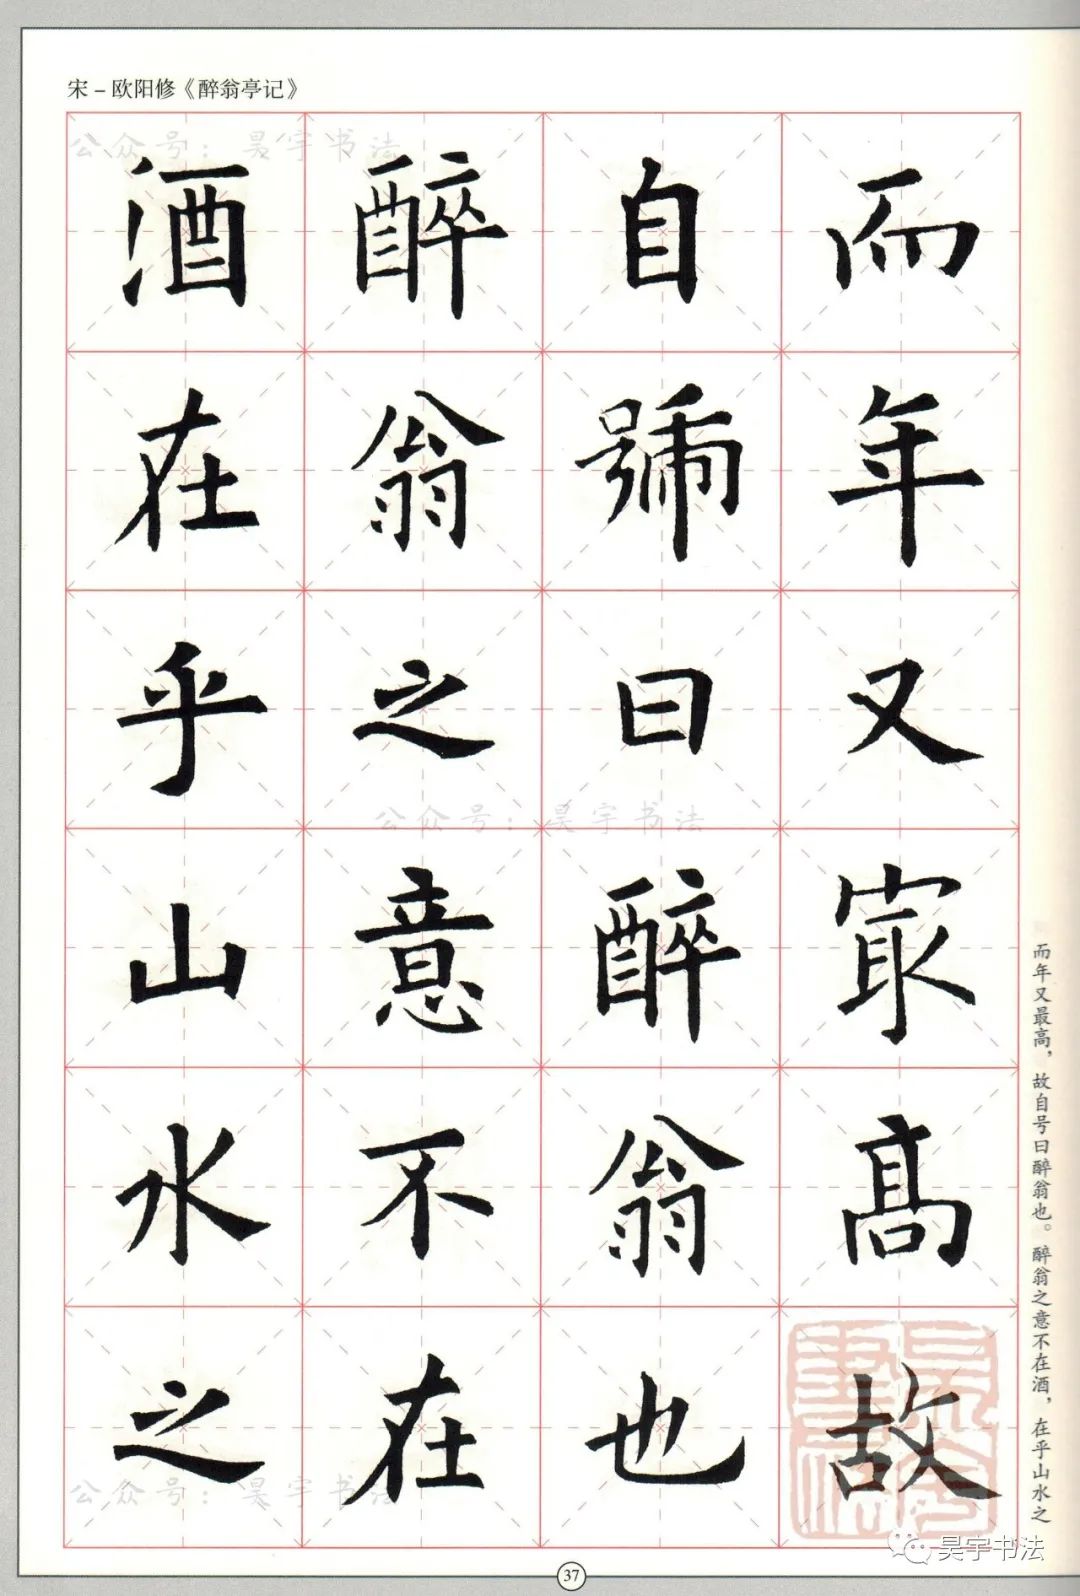 宋－欧阳修《醉翁亭记》
公众号：昊宇书法
而年又冣高故
自號曰醉翁也
醉翁之意不在
酒在乎山水之
公众号：昊宇书法
公众号：昊宇书法
而年又最高，故自号曰醉翁也。醉翁之意不在酒，在乎山水之
昊宇书法
昊宇书法
37